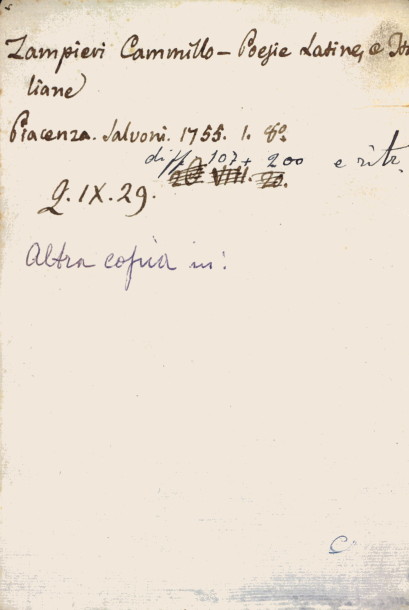 Zampieri Cammillo – Poesie Latine, e Ita
liane
Piacenza. Salvoni. 1755. 1. 8º.
diff 107 + 200 e ritr.
20 VIII. 20.
Q. IX. 29.
Altra copia in:
C